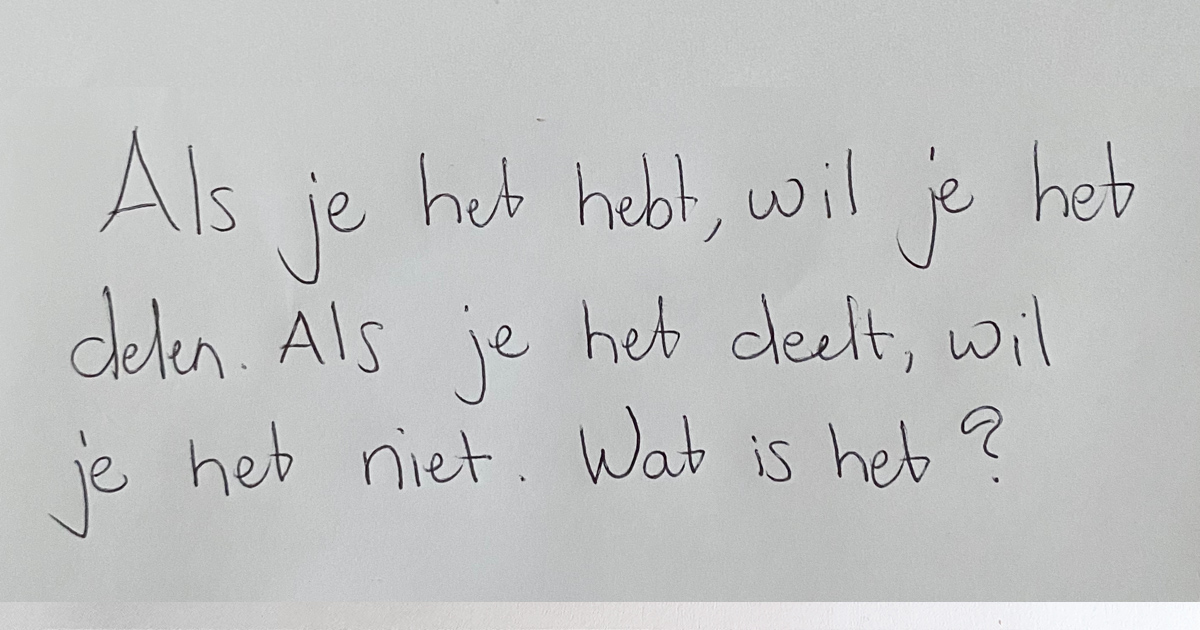 Als je het hebt, wil je het
delen. Als je het deelt, wil
je het niet. Wat is het?